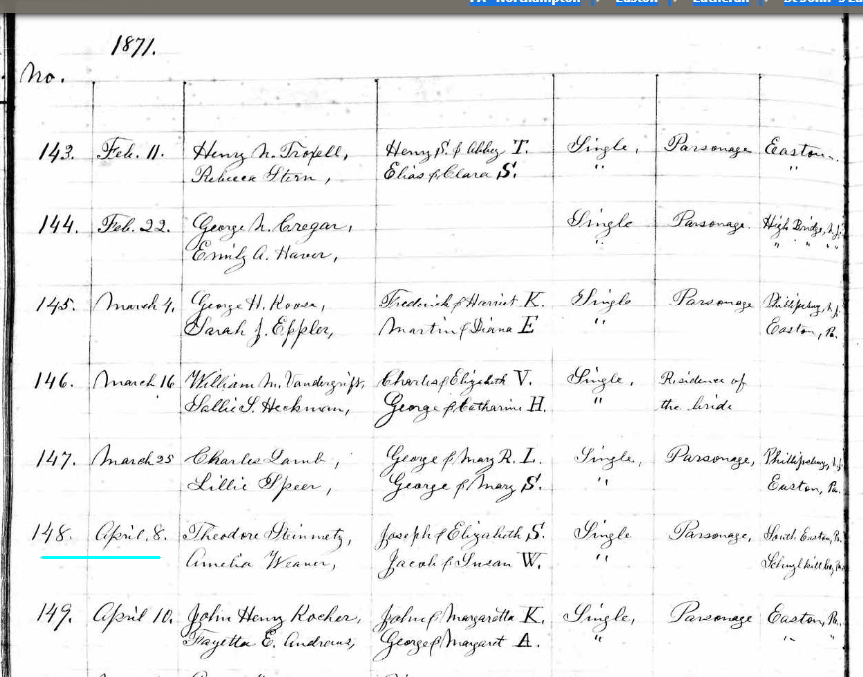 PA Northampton Easton Lutheran St John's
1871.
No.
143. Feb. 11. Henry N. Troxell, Henry S. & Abbey T. Single, Parsonage Easton.
Rebecca Stern, Elias & Clara S. " "
144. Feb. 22. George N. Cregar, Single Parsonage. High Bridge, N.J.
Emily A. Haver, " " " "
145. March 4. George H. Koose, Frederick & Harriet K. Single Parsonage Phillipsburg, N.J.
Sarah J. Eppler, Martin & Diana E " Easton, Pa.
146. March 16 William M. Vandergrift, Charles & Elizabeth V. Single, Residence of
Sallie S. Heckman, George & Catharine H. " the bride
147. March 25 Charles Lamb, George & Mary R. L. Single, Parsonage, Phillipsburg, N.J.
Lillie Speer, George & Mary S. " Easton, Pa.
148. April. 8. Theodore Steinmetz, Joseph & Elizabeth S. Single Parsonage, South Easton, Pa.
Amelia Weaver, Jacob & Susan W. " Schuylkill Co., Pa.
149. April 10. John Henry Kocher, John & Margaretta K. Single, Parsonage Easton, Pa.
Fayetta E. Andrews, George & Margaret A. " " "